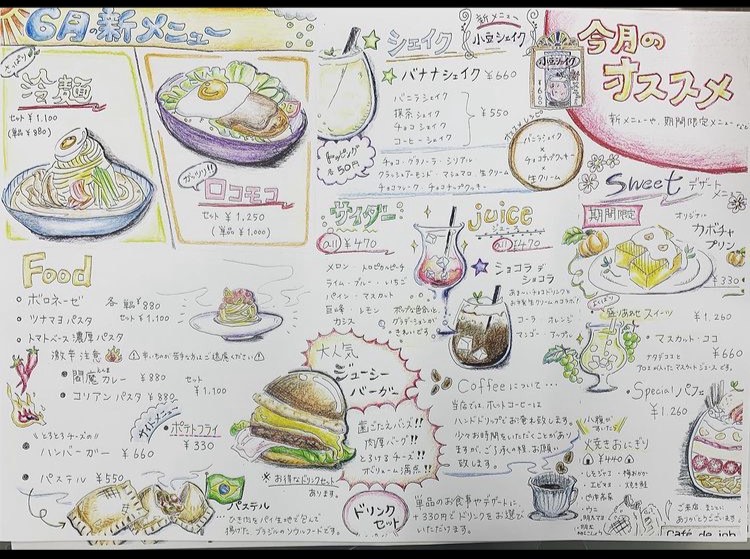 6月の新メニュー
さっぱり
冷麺
セット ¥1,100
(単品 ¥980)
がっつり!!
ロコモコ
セット ¥1,250
(単品 ¥1,000)
シェイク
新メニュー
小豆シェイク
バナナシェイク ¥660
バニラシェイク
抹茶シェイク
チョコシェイク
コーヒーシェイク
¥550
トッピング
各50円
チョコ・グラノーラ・シリアル
クラッシュアーモンド・マシュマロ・生クリーム
チョコマーブル・チョコチップクッキー
バニラシェイク
×
チョコチップクッキー
生クリーム
小豆シェイク
¥660
今月の
オススメ
新メニューや、期間限定メニューなど
Sweet デザートメニュー
期間限定
オリジナル
カボチャ
プリン
¥330
盛りあわせ スイーツ
¥1,260
マスカット・ココ
¥660
ナタデココと
アロエが入ったマスカットジュースです。
Special パフェ
¥1,260
小腹がすいたら
焼きおにぎり
¥440
ご来店、まことに
ありがとうございます。
Café de job
サイダー
all ¥470
メロン・トロピカルピーチ
ライム・ブルー・いちご
パイン・マスカット
巨峰・レモン
カシス
ポップな色合いと、
グラデーションが
きれいです。
juice
ジュース
all ¥470
ショコラ デ
ショコラ
あま〜いチョコドリンクと
お手製生クリームのコラボ!
コーラ オレンジ
マンゴー アップル
Food
ボロネーゼ
ツナマヨパスタ
トマトベース濃厚パスタ
各 単品 ¥880
セット ¥1,100
激辛注意
辛いものが苦手な方はご遠慮ください
閻魔カレー ¥880
コリアンパスタ ¥880
セット
¥1,100
とろとろチーズの!!
ハンバーガー ¥660
パステル ¥550
サイドメニュー
ポテトフライ
¥330
パステル
ひき肉をパイ生地で包んで
揚げたブラジルのソウルフードです。
大人気
ジューシー
バーガー
歯ごたえバンズ!!
肉厚バーグ!!
とろけるチーズ!!
ボリューム満点!!
※お得なドリンクセット
あります。
ドリンク
セット
単品のお食事やデザートに、
+330円でドリンクをお選び
いただけます。
Coffeeについて…
当店では、ホットコーヒーは
ハンドドリップでお淹れ致します。
少々お時間をいただくことがあり
ますが、ご了承の程、お願い
致します。